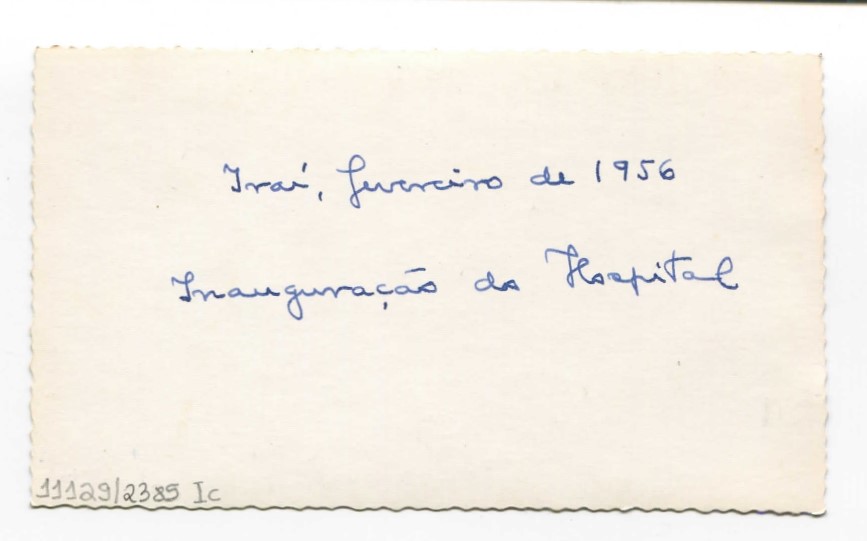 Iraí, fevereiro de 1956
Inauguração do Hospital
11129/2385 Ic